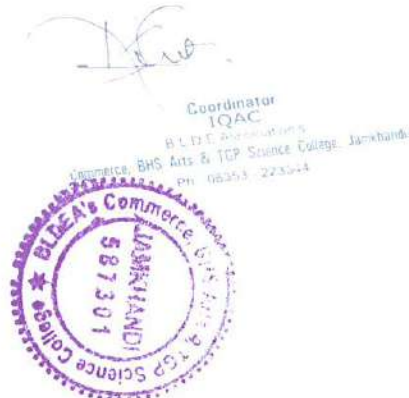 Coordinator
IQAC
B L D E Association's
Commerce, BHS Arts & TGP Science College, Jamkhandi
BLDEA's Commerce, BHS Arts & TGP Science College ★
JAMKHANDI
587301